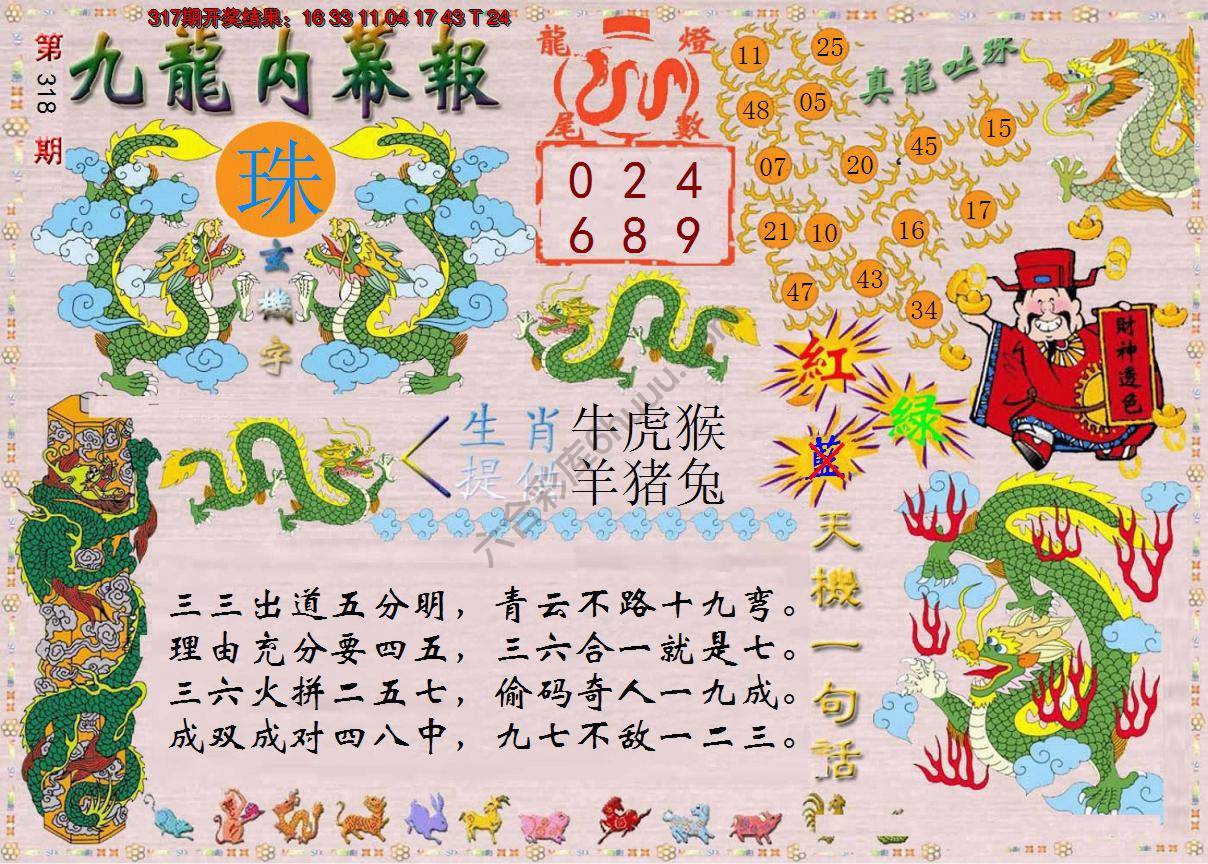 317期开奖结果：16 33 11 04 17 43 T 24
第318期
九龍内幕報
珠
玄機字
龍燈
尾數
0 2 4
6 8 9
真龍吐珠
11
25
48
05
45
15
07
20
17
21
10
16
43
47
34
財神透色
紅
綠
藍
生肖 牛虎猴
提供 羊猪兔
三三出道五分明，青云不路十九弯。
理由充分要四五，三六合一就是七。
三六火拼二五七，偷码奇人一九成。
成双成对四八中，九七不敌一二三。
天機一句話